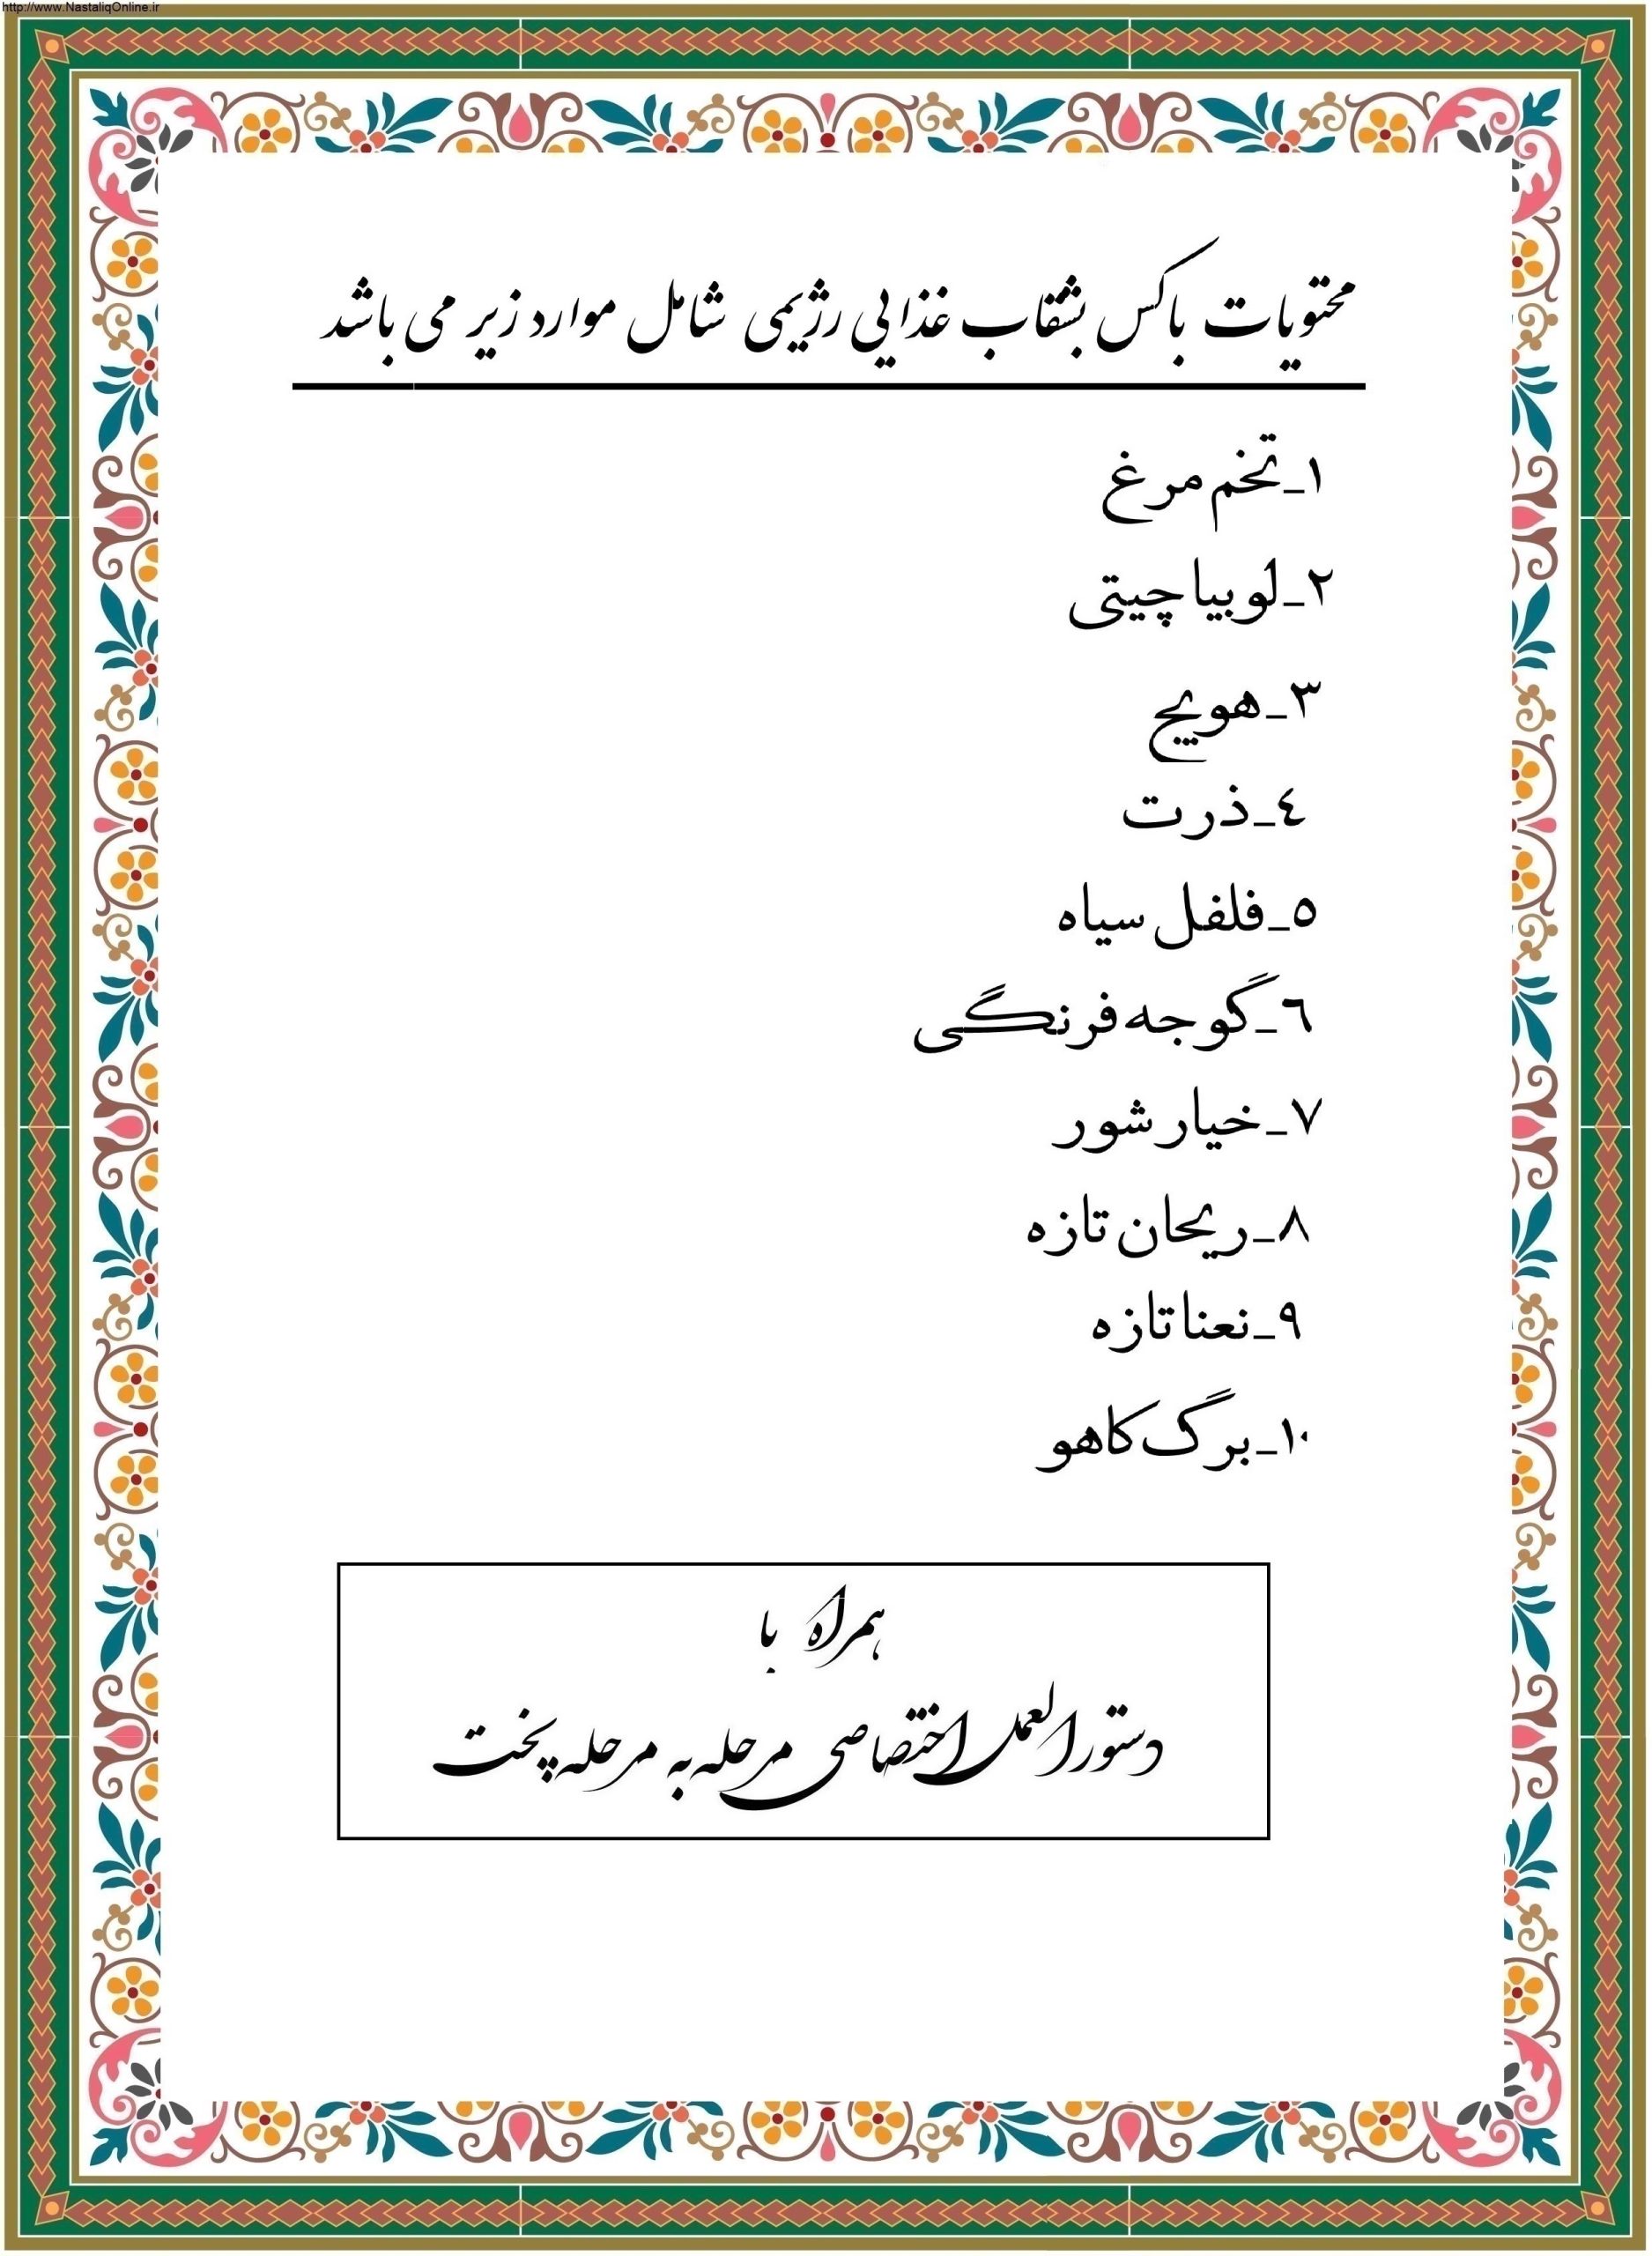 http://www.NastaliqOnline.ir
محتویات باکس بشقاب غذایی رژیمی شامل موارد زیر می باشد
١_تخم مرغ
٢_لوبیا چیتی
٣_هویج
٤_ذرت
٥_فلفل سیاه
٦_گوجه فرنگی
٧_خیار شور
٨_ریحان تازه
٩_نعنا تازه
١٠_برگ کاهو
همراه با
دستورالعمل اختصاصی مرحله به مرحله پخت